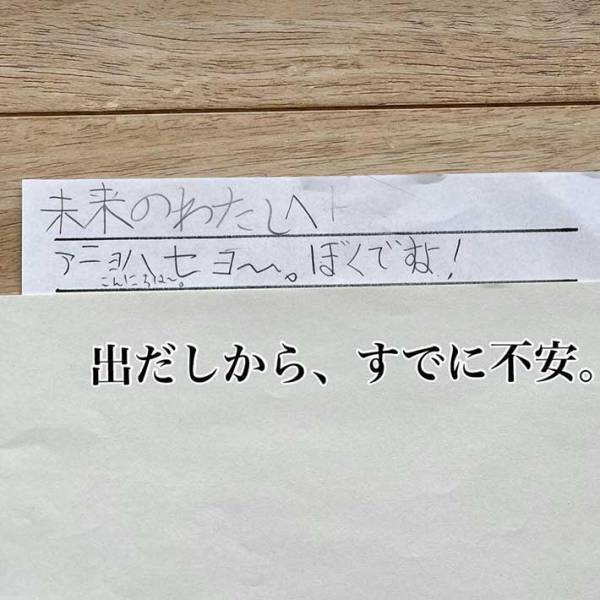 未来のわたしへ
アニョハセヨ〜。ぼくですよ!
こんにちは〜。
出だしから、すでに不安。